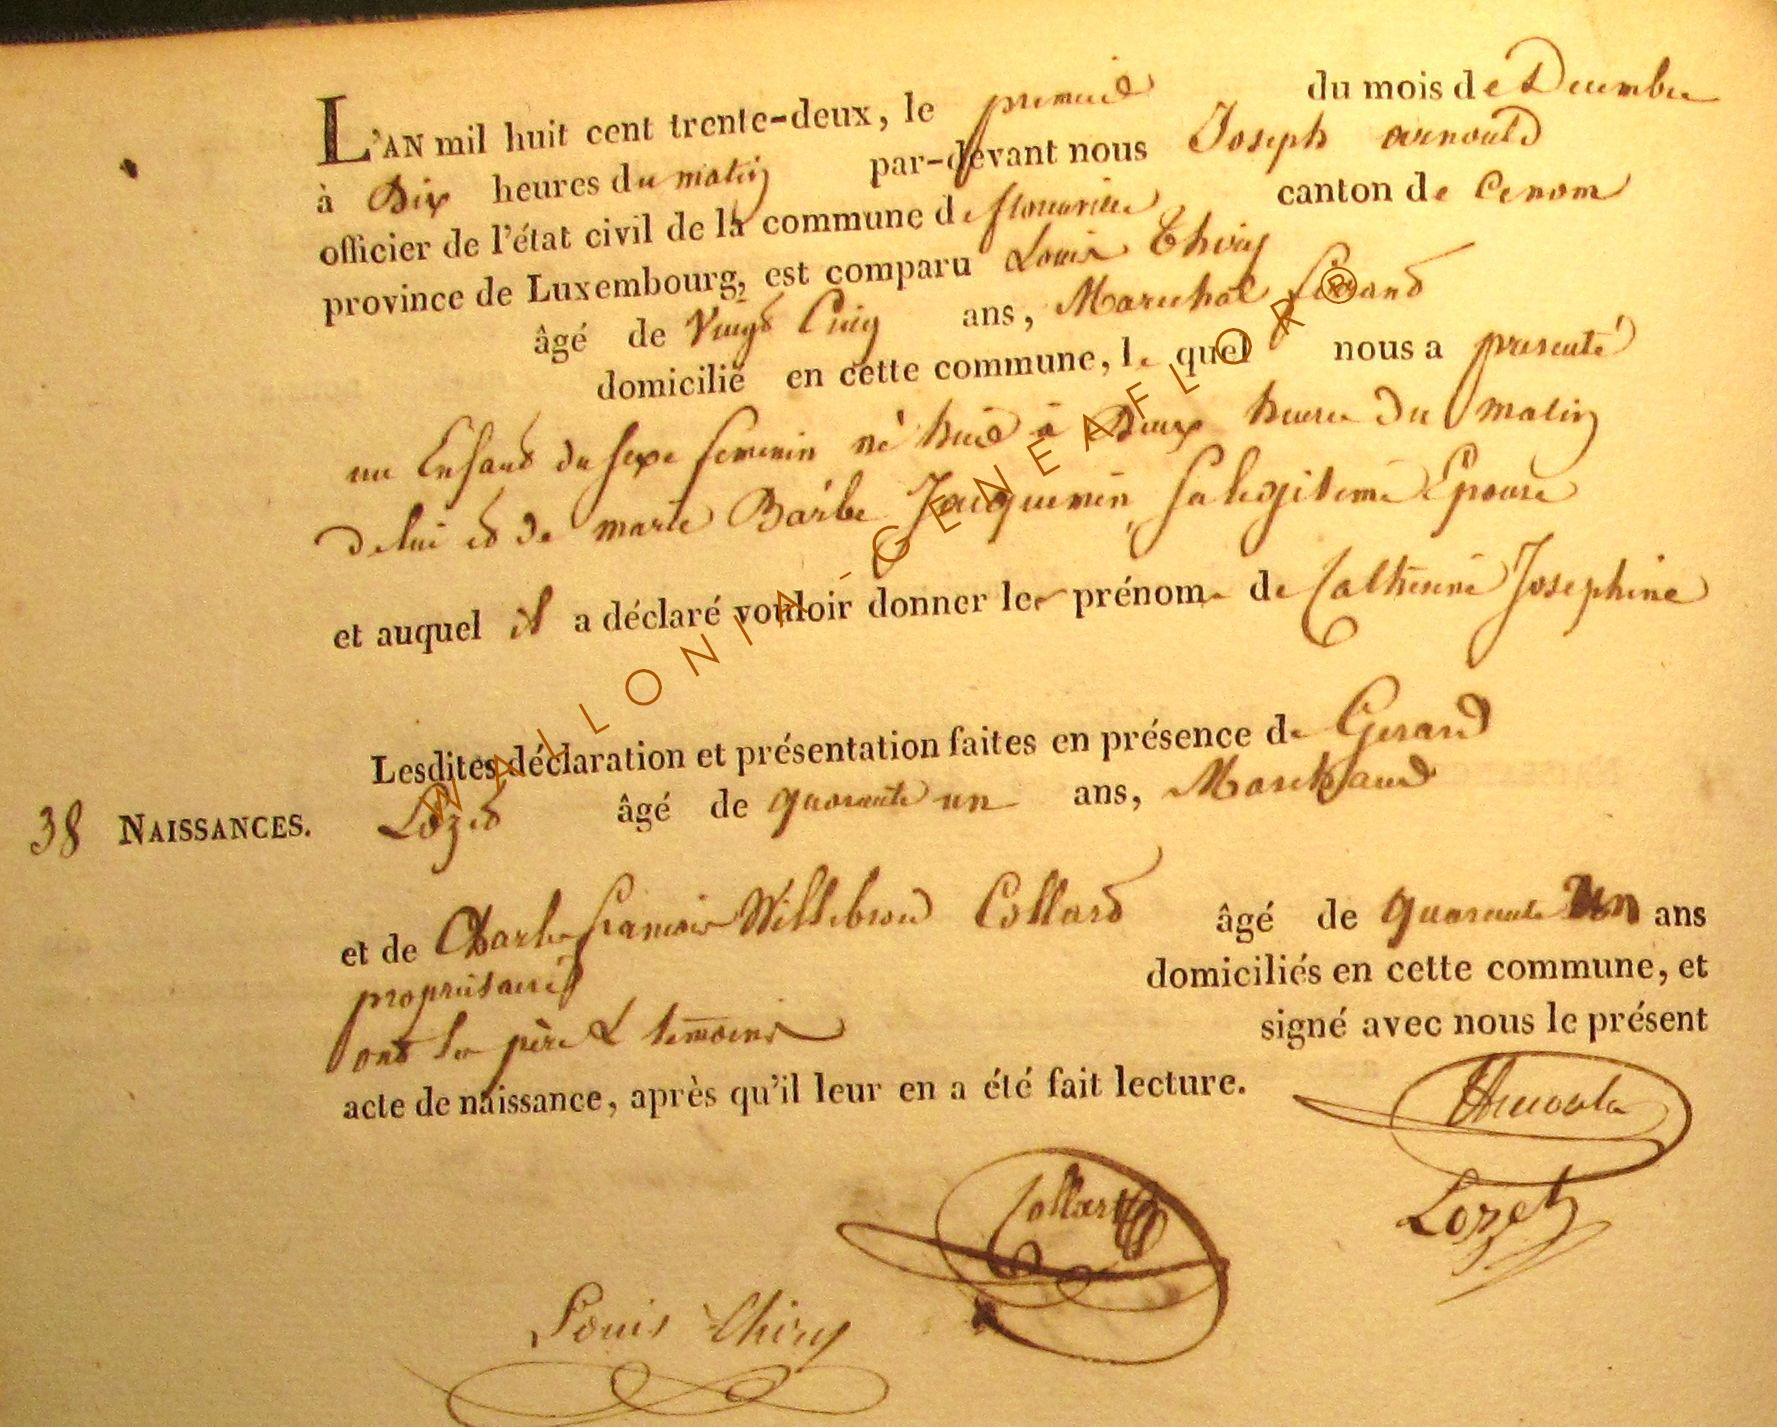 L'AN mil huit cent trente-deux, le premier du mois de Decembre
à Dix heures du matin par-devant nous Joseph Arnould
officier de l'état civil de la commune de florenville canton de
province de Luxembourg, est comparu Louis Thiry
âgé de Vingt Cinq ans, Marechal ferrant
domicilié en cette commune, le quel nous a presenté
un Enfant du sexe feminin né hier à Deux heures du matin
de lui et de marie Barbe Jacquemin, sa legitime Epouse
et auquel il a déclaré vouloir donner les prénoms de Catherine Josephine
Lesdites déclaration et présentation faites en présence de Gerard
Lozet âgé de quarante un ans, Marchand
38 NAISSANCES.
et de Charles francois Willebrod Collard âgé de quarante un ans
propriétaire domiciliés en cette commune, et
ont les père & temoins signé avec nous le présent
acte de naissance, après qu'il leur en a été fait lecture.
Lozet
Collard
Louis Thiry
WALLONIA-GENEAFLOR®